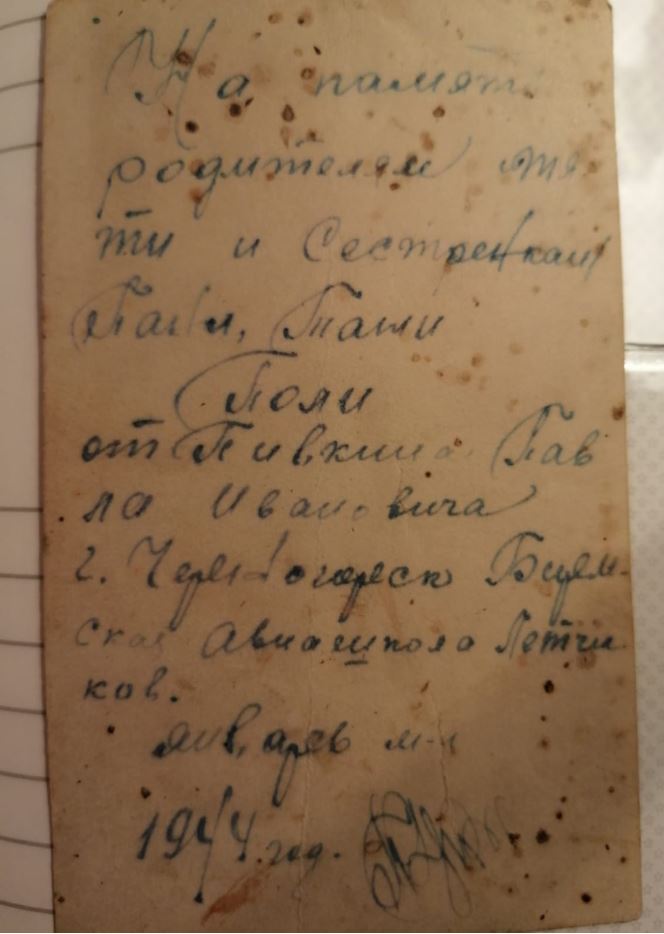 На память
родителям тя
ти и Сестренкам
Паш, Таши
Поли
от Пивкина Пав
ла Ивановича
г. Черногорск Бирм-
ская Авиашкола Летчи
ков.
январь м-ц
1944 год.